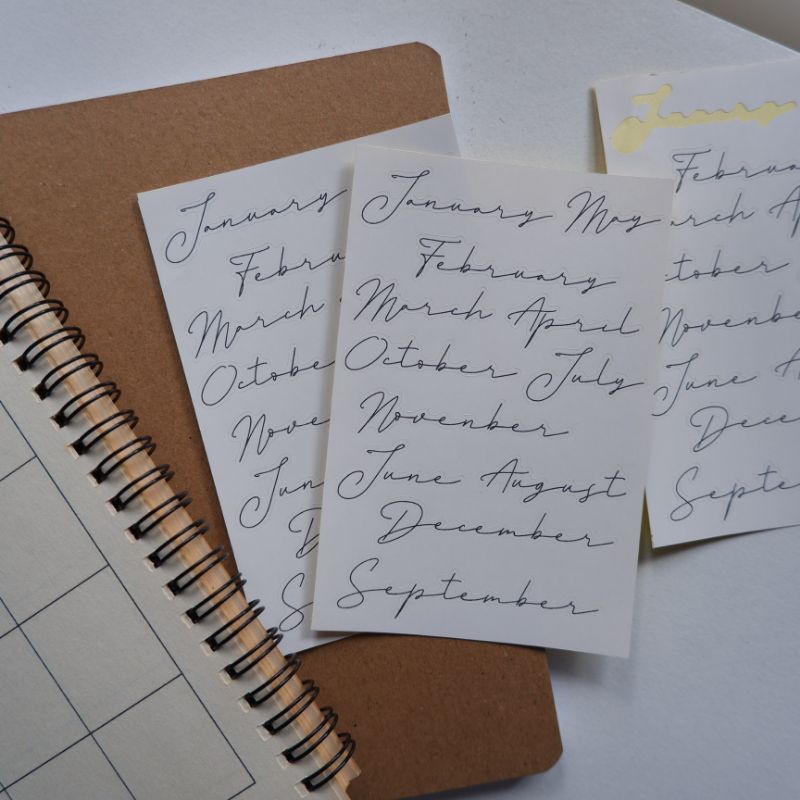 January
Febru
March
Octobe
Nove
Jun
D
S
January May
February
March April
October July
Novenber
June August
December
September
Februa
arch A
tober
Novenbe
June A
Dece
Septe